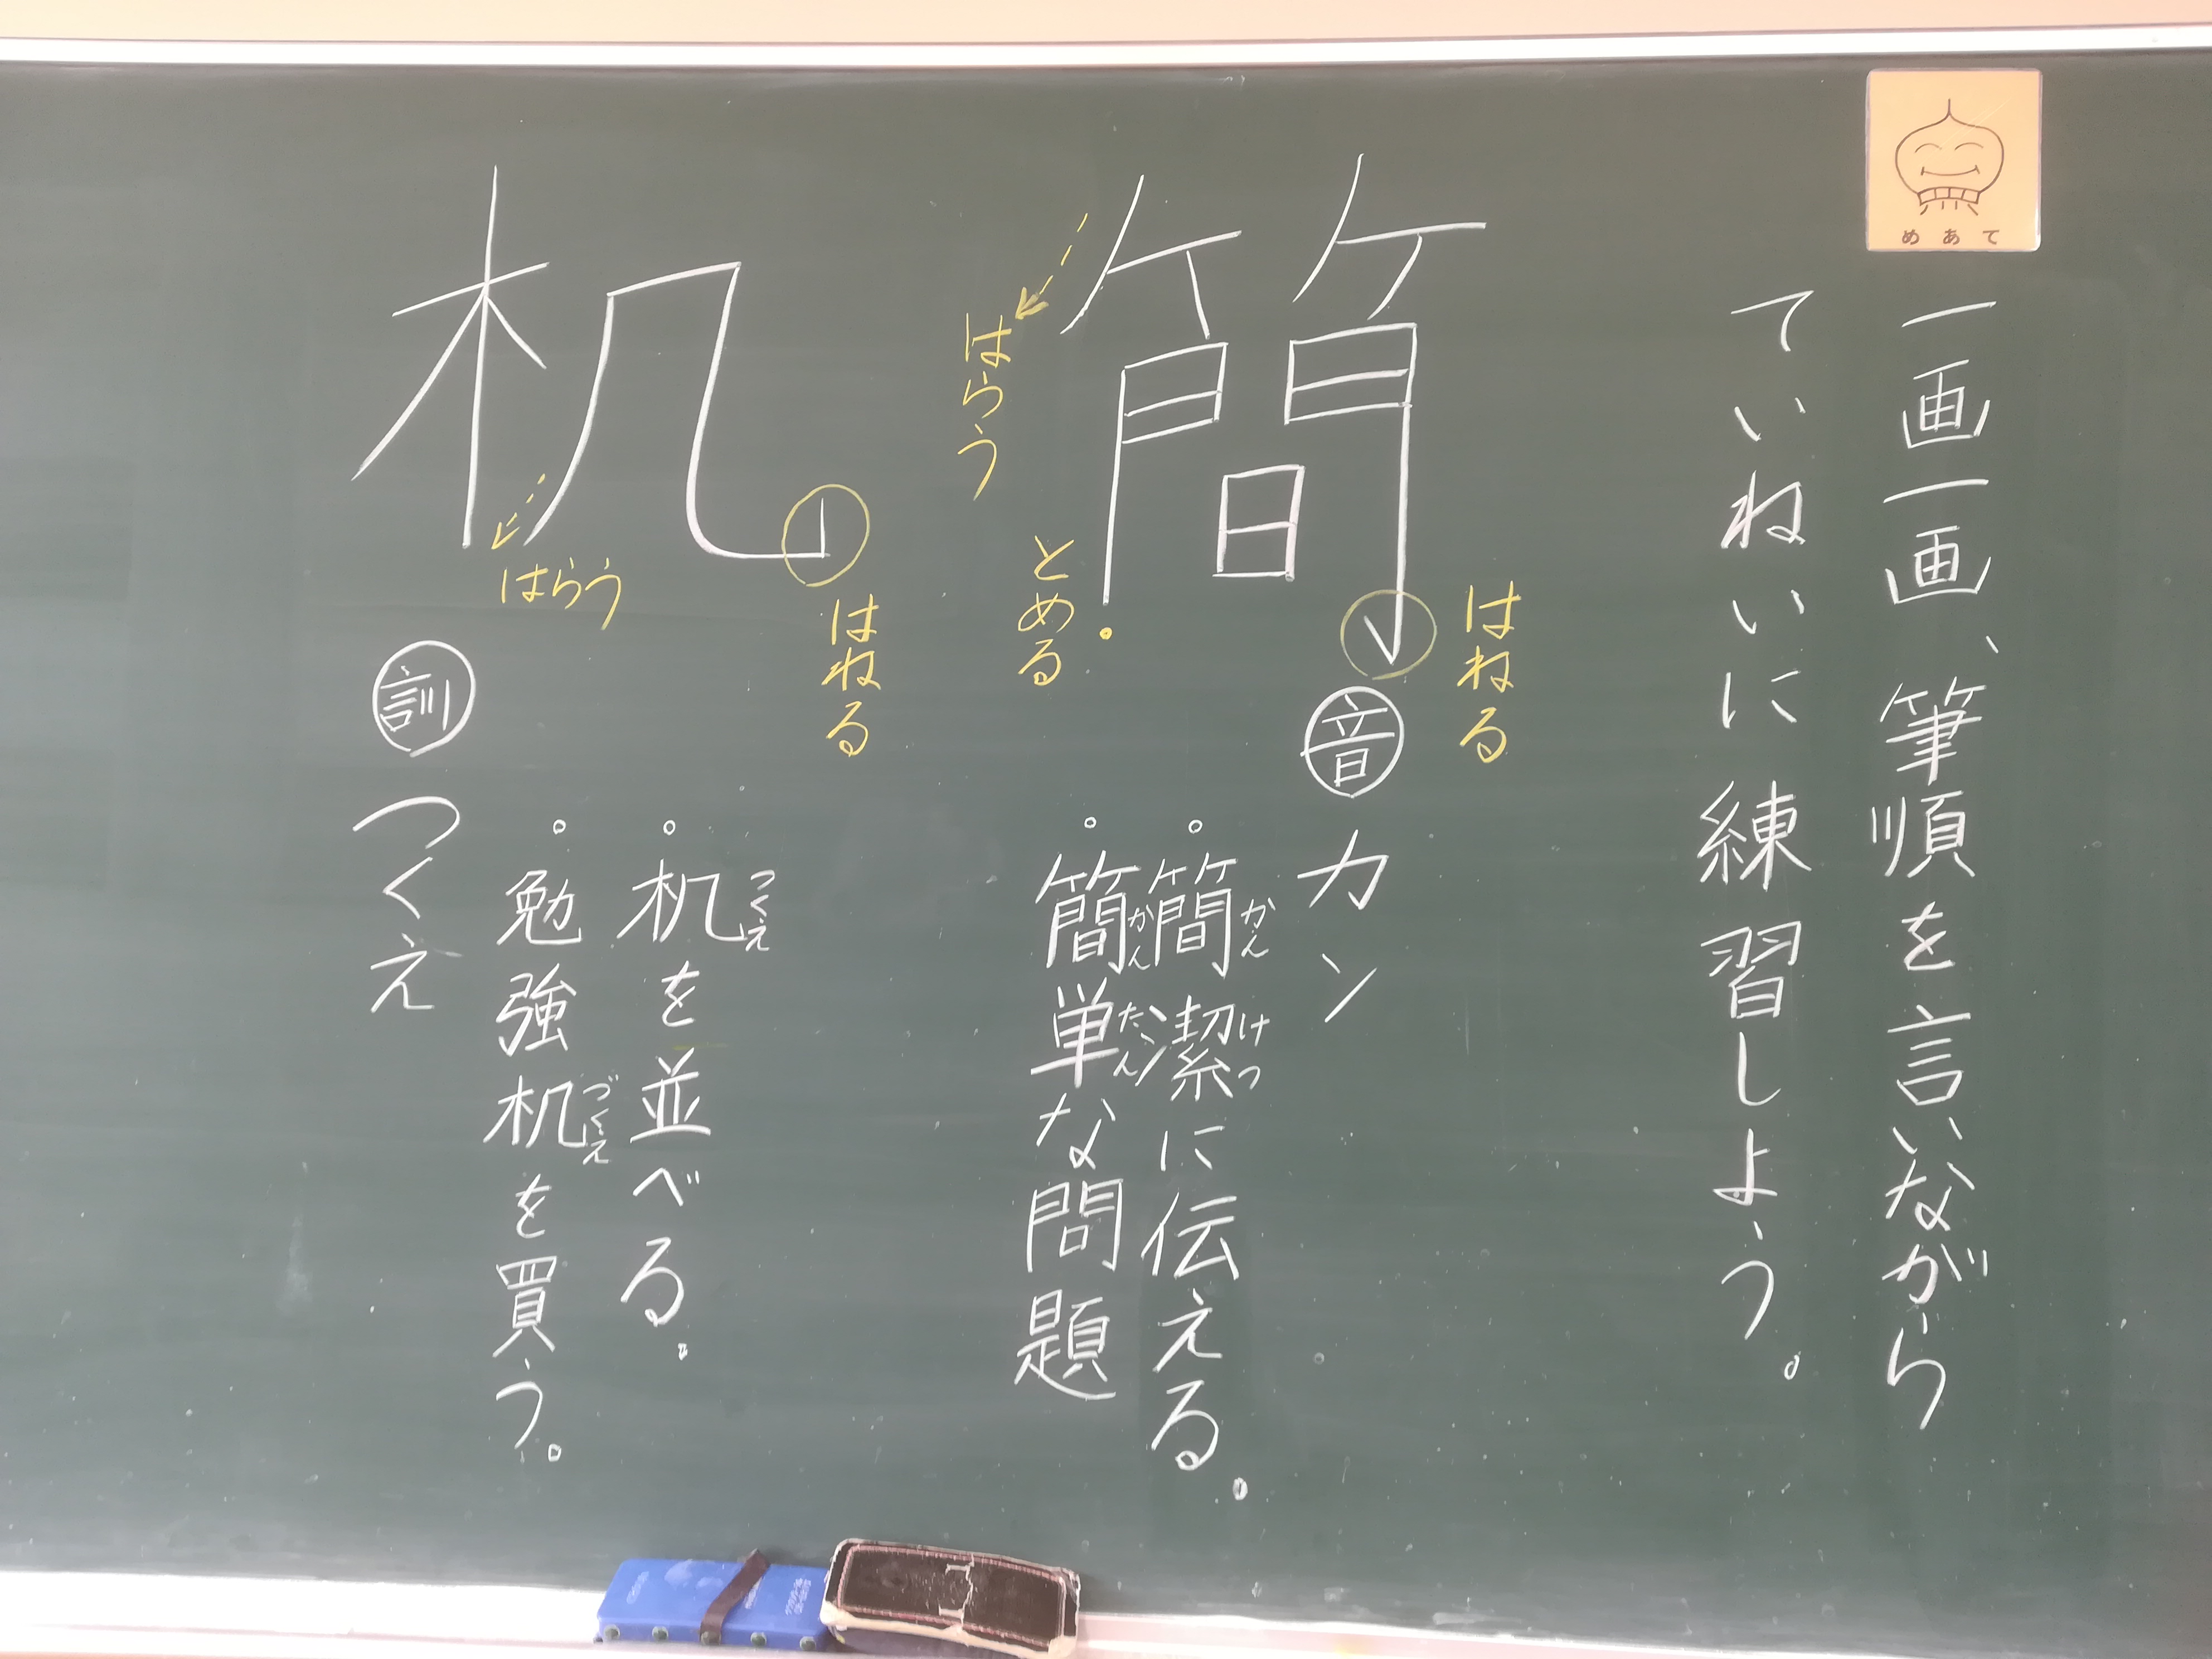 めあて
一画一画、筆順を言いながら
ていねいに練習しよう。
簡
はねる
はらう
とめる
音 カン
。簡潔に伝える。
かんけつ
。簡単な問題
かんたん
机
はねる
はらう
訓 つくえ
。机を並べる。
つくえ
。勉強机を買う。
づくえ